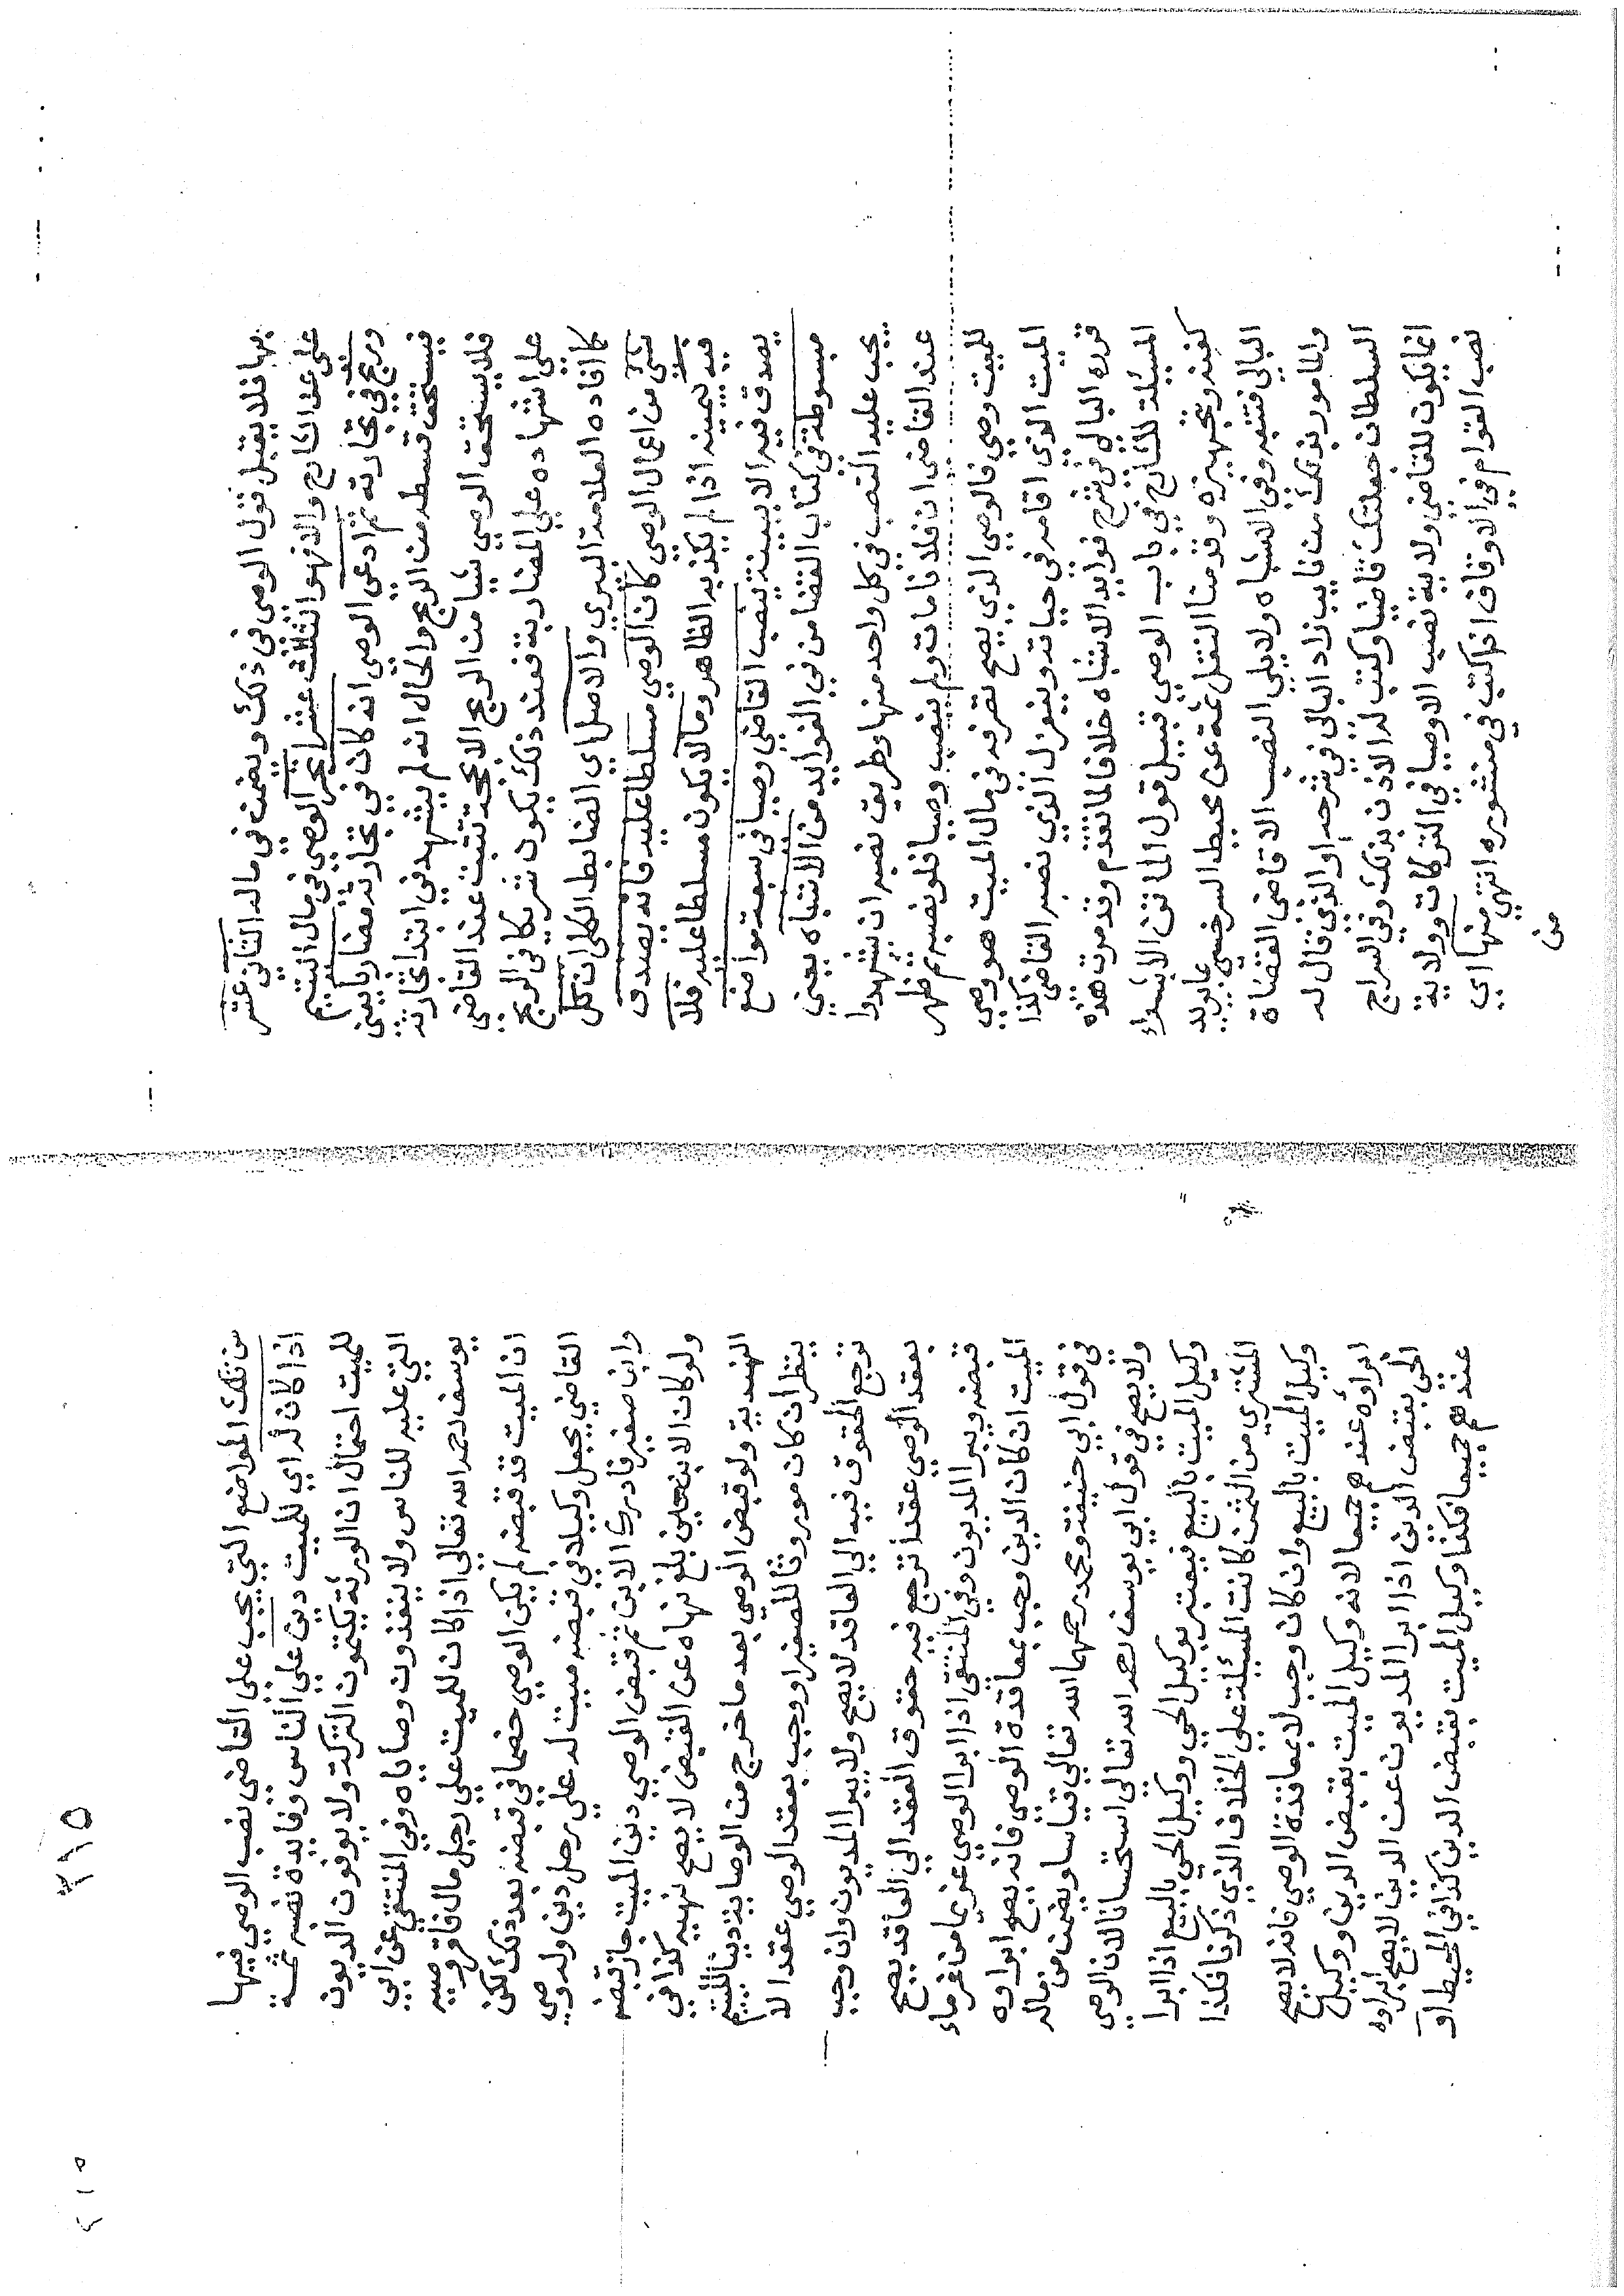 بها فلا يقبل قول الوصي في ذلك ويضمن في ماله الثاني عشر
على عد الشارح والافهو الثالث عشر اتجر الوصي في مال اليتيم
وربح في تجارته ثم ادعي الوصي انه كان في تجارته مضاربا يعني
فيستحق قسطه من الربح والحال انه لم يشهد في ابتدا تجارته
فلا يستحق الوصي شيا من الربح الا بحجة تثبت عند القاضي
على اشهاده علي المضاربة فعند ذلك يكون شريكا في الربح
كما افاده العلامة البيري والاصل اي الضابط الكلي ان كل
شي من اعمال الوصي كان الوصي مسلطا عليه فانه يصدق
فيه بيمينه اذا لم يكذبه الظاهر وما لا يكون مسلطا عليه فلا
يصدق فيه الا ببينة ينصب القاضي وصيا في سبعة مواضع
مبسوطة في كتاب القضا من فن الفوايد من الاشباه يعني
يجب عليه النصب في كل واحد منها وطريق نصبه ان يشهدوا
عند القاضي ان فلانا مات ولم ينصب وصيا فلو نصبه ثم ظهر
للميت وصي فالوصي الذي يصح تصرفه في مال الميت هو وصي
الميت الذي اقامه في حياته وينعزل الذي نصبه القاضي كذا
قرره البالي في شرح فوايد الاشباه خلافا لما تقدم وقد مرت هذه
المسئلة للشارح في باب الوصي قبيل قول الماتن الا بشراء
كفنه وتجهيزه وقدمنا النقل ثمة عن محيط السرخسي بما يويد
البالي فتنبه وفي الاشباه ولا يلي النصب الا قاضي القضاة
والمامور بذلك من نايب زاد البالي في شرحه او الذي قال له
السلطان جعلتك قاضيا وكتب له الاذن بذلك وفي السراج
انما يكون للقاضي ولاية نصب الاوصيا في التركات وولاية
نصب القوام في الاوقاف اذا كتب في منشوره انتهي منها اي
من
٢١٥
من تلك المواضع التي يجب على القاضي نصب الوصي فيها
اذا كان له اي للميت دين علي الناس وفايدة نصبه ثمة
للميت احتمال ان الورثة يكتمون التركة ولا يوفون الديون
التي عليه للناس ولا ينفذون وصاياه وفي المنتقي عن ابي
يوسف رحمه الله تعالي اذا كان للميت علي رجل مال فاقر وصيه
ان الميت قد قبضه لم يكن الوصي خصما في قبضه بعد ذلك لكن
القاضي يجعل وكيلا في قبضه ميت له علي رجل دين وله وصي
وابن صغير فادرك الابن ثم قبض الوصي دين الميت جاز قبضه
ولو كان الابن حين بلغ نهاه عن القبض لا يصح نهيه كذا في
الهندية ولو قبض الوصي بعد ما خرج من الوصاية دينا لليتيم
ينظر ان كان موروثا للصغير او وجب بعقد الوصي عقدا لا
ترجع الحقوق فيه الي العاقد لا يصح ولا يبرا المديون وان وجب
بعقد الوصي عقدا ترجع فيه حقوق العقد الي العاقد يصح
قبضه ويبرا المديون وفي المنتقي اذا ابرا الوصي غريما من غرماء
الميت ان كان الدين وجب بمعاقدة الوصي فانه يصح ابراوه
في قول ابي حنيفة ومحمد رحمهما الله تعالي قياسا ويضمن من ماله
ولا يصح في قول ابي يوسف رحمه الله تعالي استحسانا لان الوصي
وكيل الميت بالبيع فيعتبر بوكيل الحي ووكيل الحي بالبيع اذا ابرا
المشتري من الثمن كانت المسئلة علي الخلاف الذي ذكرنا فكذا
وكيل الميت بالبيع وان كان وجب لا بمعاقدة الوصي فانه لا يصح
ابراؤه عندهم جميعا لانه وكيل الميت بقبض الدين ووكيل
الحي بقبض الدين اذا ابرا المديون عن الدين لا يصح ابراوه
عندهم جميعا فكذا وكيل الميت بقبض الدين كذا في المحيط او
٢١٥